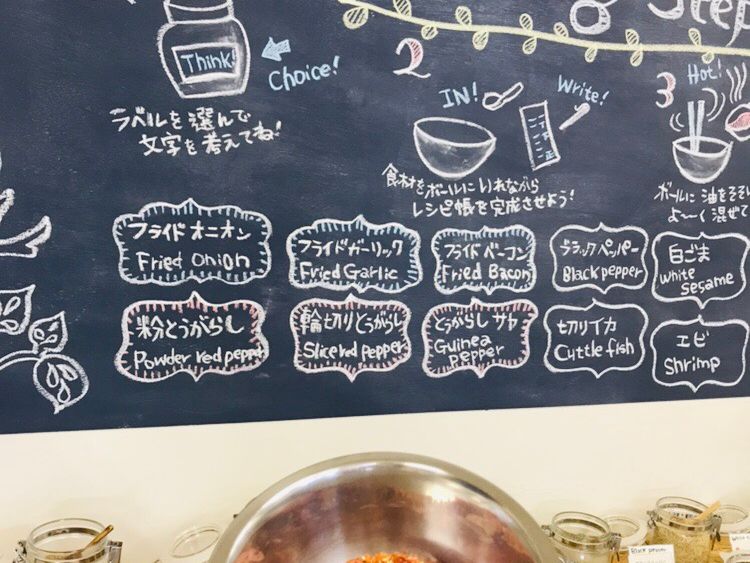 Step
Think!
Choice!
ラベルを選んで
文字を考えてね!
2
IN!
Write!
食材をボールにいれながら
レシピ帳を完成させよう!
3
Hot!
ボールに油をそそい
よ〜く混ぜて
フライドオニオン
Fried onion
フライドガーリック
Fried Garlic
フライドベーコン
Fried Bacon
ブラックペッパー
Black pepper
白ごま
white
sesame
粉とうがらし
Powder red pepper
輪切りとうがらし
Slice red pepper
とうがらしサヤ
Guinea
pepper
切りイカ
Cuttle fish
エビ
Shrimp
Black pepper